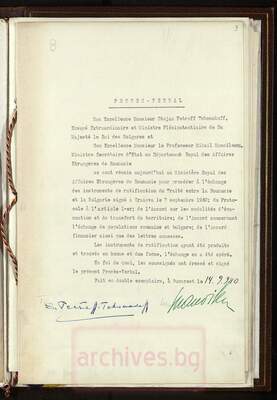 8
3
PROCES-VERBAL
Son Excellence Monsieur Stojan Petroff Tchomakoff,
Envoyé Extraordinaire et Ministre Plénipotentiaire de Sa
Majesté le Roi des Bulgares et
Son Excellence Monsieur le Professeur Mihail Manoïlesco,
Ministre Secrétaire d'Etat au Département Royal des Affaires
Etrangères de Roumanie
se sont réunis aujourd'hui au Ministère Royal des
Affaires Etrangères de Roumanie pour procéder à l'échange
des instruments de ratification du Traité entre la Roumanie
et la Bulgarie signé à Craiova le 7 septembre 1940; du Proto-
cole à l'article 1-er; de l'Accord sur les modalités d'éva-
cuation et de transfert du territoire; de l'accord concernant
l'échange de populations roumaine et bulgare; de l'accord
financier ainsi que des lettres annexes.
Les instruments de ratification ayant été produits
et trouvés en bonne et due forme, l'échange en a été opéré.
En foi de quoi, les soussignés ont dressé et signé
le présent Procès-Verbal.
Fait en double exemplaire, à Bucarest le 14.9.940
S. Petroff-Tchomakoff
Manoilesco
archives.bg